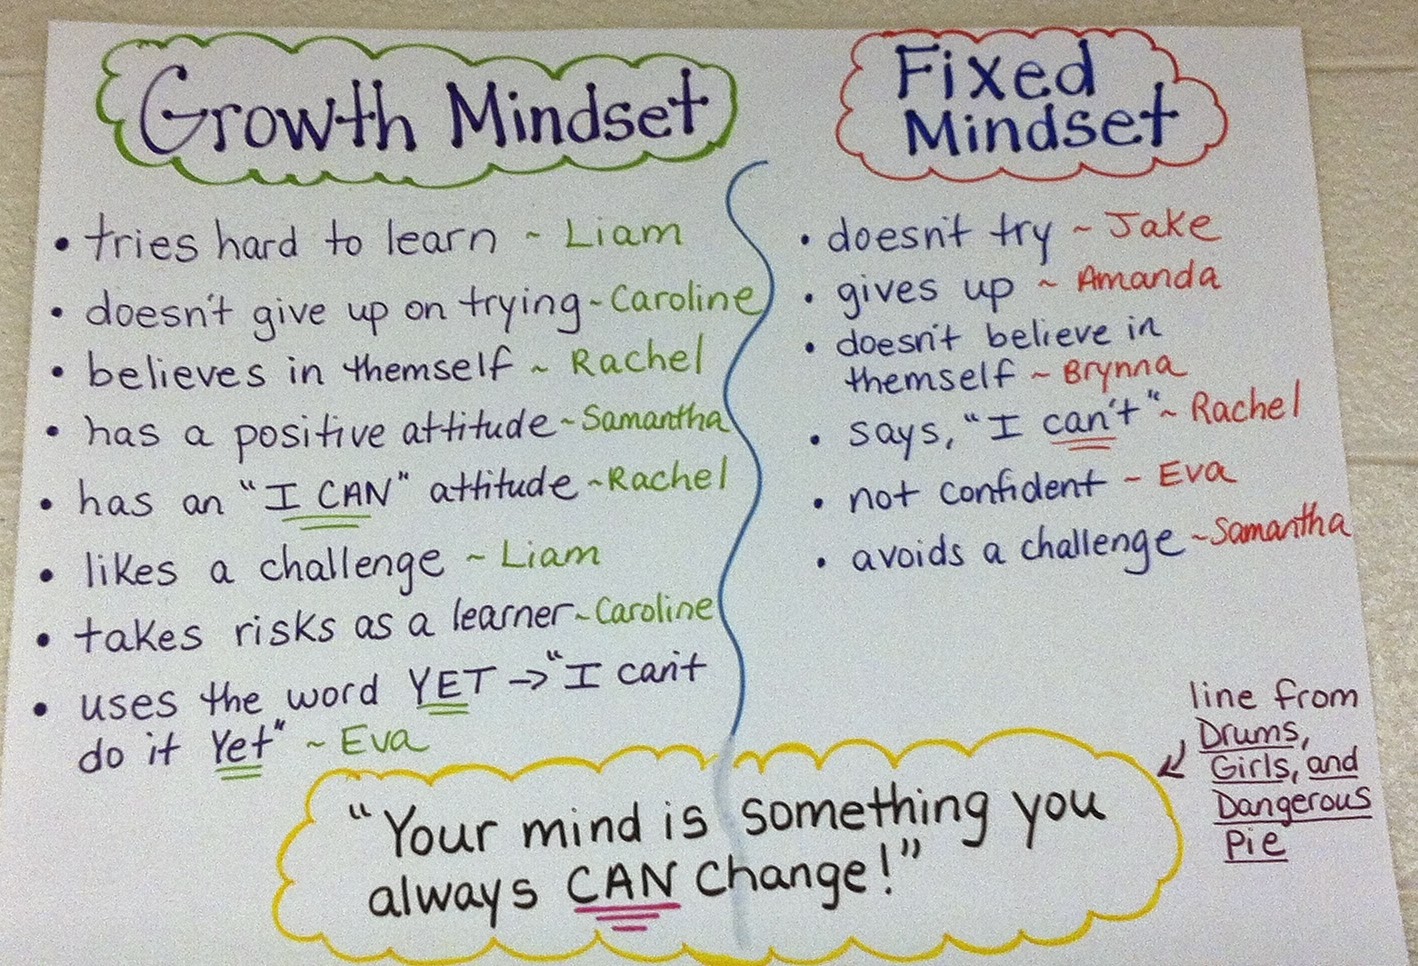 Growth Mindset
• tries hard to learn ~ Liam
• doesn't give up on trying ~ Caroline
• believes in themself ~ Rachel
• has a positive attitude ~ Samantha
• has an "I CAN" attitude ~ Rachel
• likes a challenge ~ Liam
• takes risks as a learner ~ Caroline
• uses the word YET → "I can't
do it Yet" ~ Eva
Fixed
Mindset
• doesn't try ~ Jake
• gives up ~ Amanda
• doesn't believe in
themself ~ Brynna
• says, "I can't" ~ Rachel
• not confident ~ Eva
• avoids a challenge ~ Samantha
line from
Drums,
Girls, and
Dangerous
Pie
"Your mind is something you
always CAN change!"